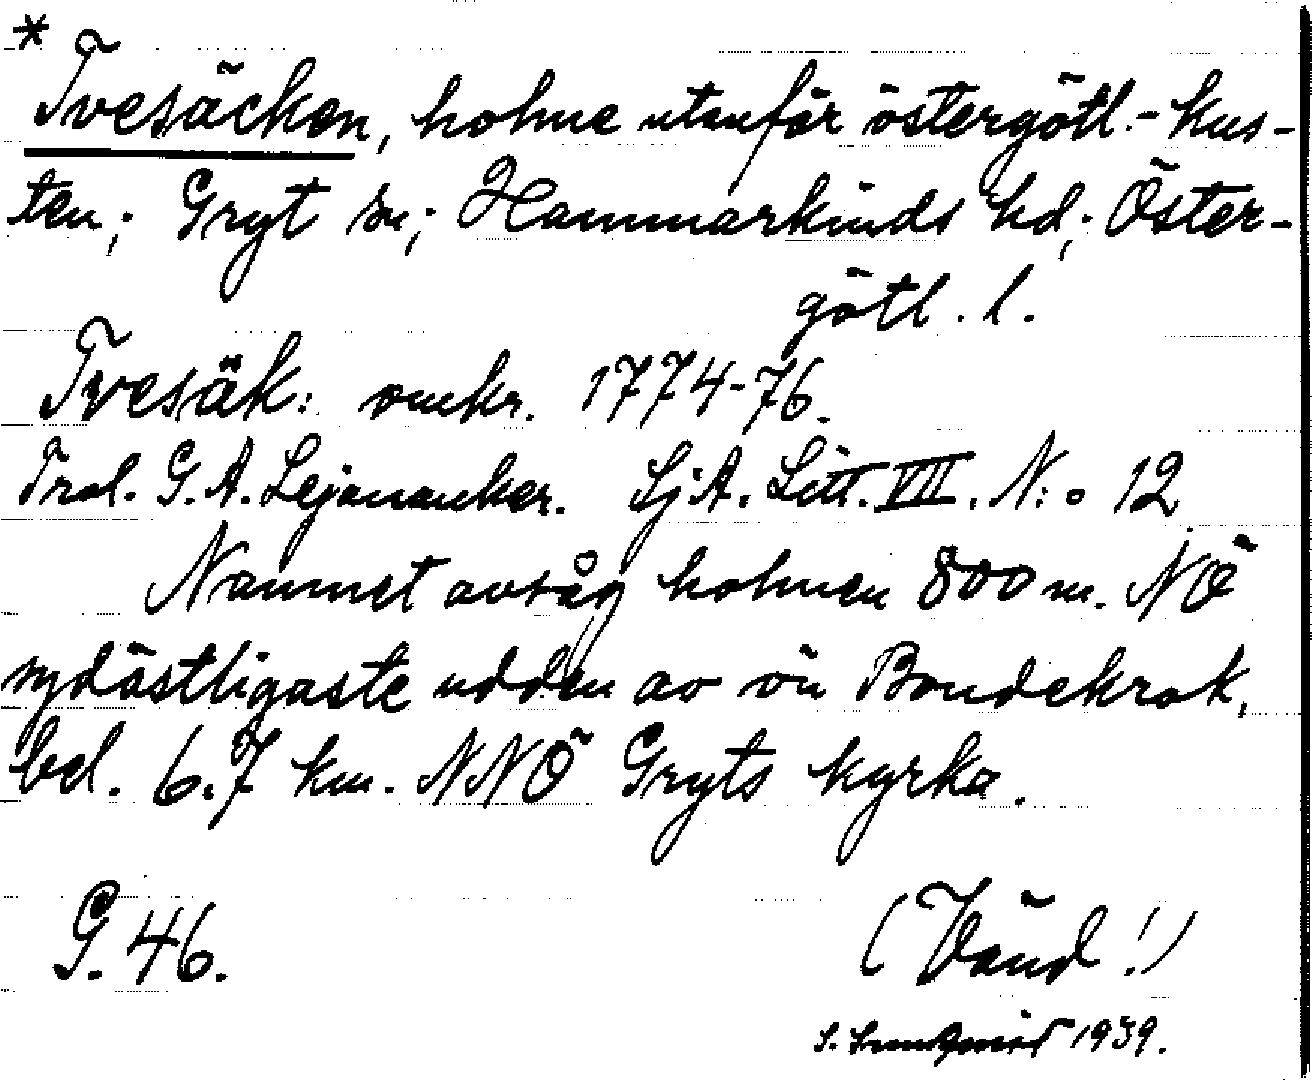 *
Tvesäcken, holme utanför östergötl.-kus-
ten; Gryt sn; Hammarkinds hd; Öster-
götl. l.
Tvesäk: omkr. 1774-76.
Trol. G. A. Lejonanker. SjA. Litt. VII. N:o 12
Namnet avsåg holmen 800 m. NÖ
sydöstligaste udden av ön Bondekrok,
bel. 6.7 km. NNÖ Gryts kyrka.
G. 46.
(Vänd!)
S. 1939.